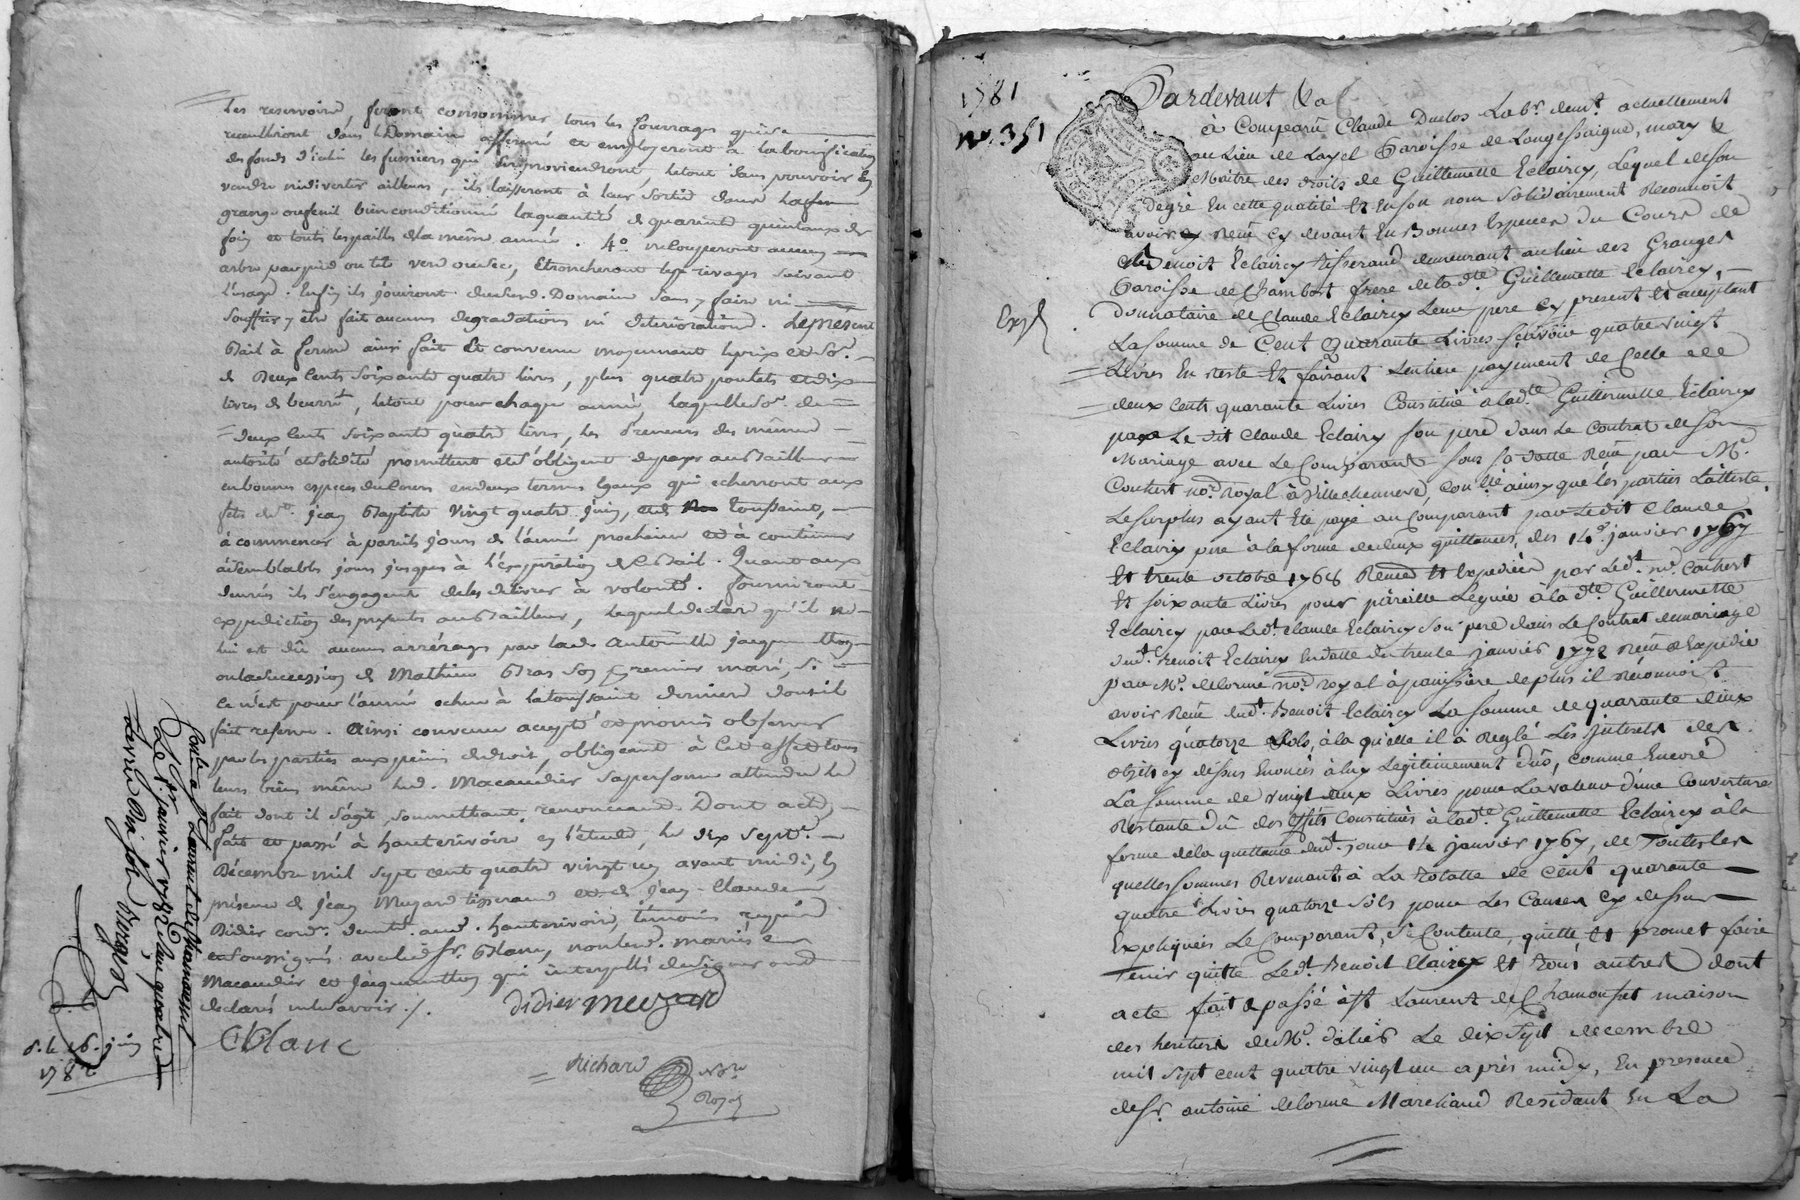 Les reservoirs, feront consommer tous les fourrages qui se
recueilliront dans le Domaine affermé et employeront à la bonification
des fonds d'icelui les fumiers qui en proviendront, le tout sans pouvoir en
vendre ni divertir ailleurs, ils laisseront à leur sortie dans la
grange ou fenil bien conditionné la quantité de quarante quintaux de
foin et touts les pailles de la même année. 4.° ne couperont aucun
arbre par pied ou tête verd ou sec, Etroncheront les rivages suivant
l'usage. Enfin ils jouiront dudit Domaine sans y faire ni
souffrir y être fait aucunes degradations ni deteriorations. Le present
Bail à ferme ainsi fait et convenu moyennant le prix et so.e
de Deux cents soixante quatre livres, plus quatre poulets et dix
livres de beurre, le tout pour chaque année, laquelle So.e de
deux cents soixante quatre livres, les Preneurs des mêmes
autorité et solidité promettent et s'obligent de payer au Bailleur
en bonnes especes du Cours en deux termes egaux qui echerront aux
fêtes de St. jean Baptiste vingt quatre juin, et de Toussaint,
à commencer à pareils jours de l'année prochaine et à continuer
à semblables jours jusques à l'expiration du Bail. Quant aux
denrées ils s'engagent de les delivrer à volonté. fourniront
expedition des presentes au Bailleur, lequel declare qu'il ne
lui est dû aucuns arrérages par lade. Antoinette jaquemetton
ou la succession de Mathieu Bras son premier mari, Si
ce n'est pour l'année echue à la toussaint derniere dont il
fait reserve. Ainsi convenu accepté et promis observer
par les parties aux peines de droit, obligeant à cet effet tous
leurs biens même led. Macaudier sa personne attendu le
fait dont il s'agit, soumettant, renonceant. Dont acte,
fait et passé à hauterivoire en l'étude, le dix sept.e
Décembre mil sept cent quatre vingt un avant midi, en
présence de jean Muzard tisserand et de jean-Claude
Didier cord.r demt. aud. hauterivoire, témoins requis
et soussignés avec led. Sr. Blanc, non led. mariés
Macaudier et jaquemetton qui interpellés de signer ont
declaré ne le savoir ./.
didier muzard
CBlanc
Richard
Nore
Royal
Controlé à St Laurent de chamousset
le 1er janvier 1782 Reçu quatre
livres dix sols
d. le 16. juin
1782
1781
N.° 351
Pardevant
à Comparû Claude Duclos Lab.r demt. actuellement
au Lieu de Layel Paroisse de Longessaigne, mary &
Maitre des droits de Guillemette Eclaircy, Lequel de son
degré En cette qualité Et En son nom solidairement Reconnoit
avoir Reçu cy devant En Bonnes Especes du Cours de
Benoit Eclaircy tisserand demeurant au lieu des Granges
Paroisse de Chambost frere de lad.te Guillemette Eclaircy,
Expé
donnataire de Claude Eclaircy Leur pere cy present Et acceptant
La somme de Cent Quarante Livres sçavoir quatre vingt
Livres En reste Et faisant L'entier payement de Celle de
deux cents quarante Livres Constituée à lad.te Guillemette Eclaircy
par Le dit Claude Eclaircy son pere dans Le Contrat de son
Mariage avec Le Comparant sous sa datte Reçu par M.e
Couhert no.re royal à Villechenneve, Con.lé ainsy que les parties L'atteste,
Le surplus ayant Eté payé au Comparant par Le dit Claude
Eclaircy pere à la forme de deux quittances, des 14.e janvier 1767
Et trente octobre 1768 Reçues Et Expediées par Led.t no.re Couhert
Et soixante Livres pour pareille Leguée à lad.te Guillemette
Eclaircy par Led.t Claude Eclaircy son pere dans Le Contrat de mariage
dud.t Benoit Eclaircy En datte du trente janvier 1772 Reçu & Expedié
par M.e delorme no.re royal à panissiere de plus il reconnoit
avoir Reçu dud.t Benoit Eclaircy La somme de quarante deux
Livres quatorze Sols, à laquelle il a Reglé Les Interets des
objets cy dessus Enoncés à luy Legitimement dûs, comme Encore
La somme de vingt deux Livres pour La valeur d'une Couverture
Restante dû des effets Constitués à lad.te Guillemette Eclaircy à la
forme de la quittance dud.t jour 14 janvier 1767, de Toutes les
quelles sommes Revenant à La totalle de cent quarante
quatre Livres quatorze sols pour Les Causes cy dessus
Expliquées Le Comparant, Se Contente, quitte Et promet faire
Tenir quitte Led.t Benoit Claircy Et tous autres dont
acte fait & passé à St Laurent de Chamousset maison
des heritiers de M.e dalier Le dix Sept decembre
mil Sept cent quatre vingt un après midy, En presence
de Sr antoine delorme Marchand Residant En La